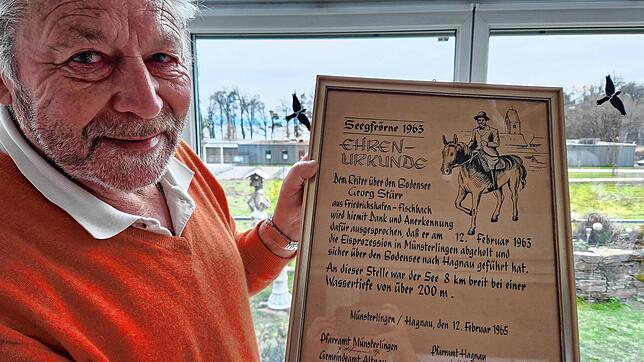 Seegfrörne 1963
EHREN-
URKUNDE
Dem Reiter über den Bodensee
Georg Stärr
aus Friedrichshafen - Fischbach
wird hiemit Dank und Anerkennung
dafür ausgesprochen, daß er am 12. Februar 1963
die Eisprozession in Münsterlingen abgeholt und
sicher über den Bodensee nach Hagnau geführt hat.
An dieser Stelle war der See 8 km breit bei einer
Wassertiefe von über 200 m.
Münsterlingen / Hagnau, den 12. Februar 1965
Pfarramt Münsterlingen Pfarramt Hagnau
Gemeindeamt